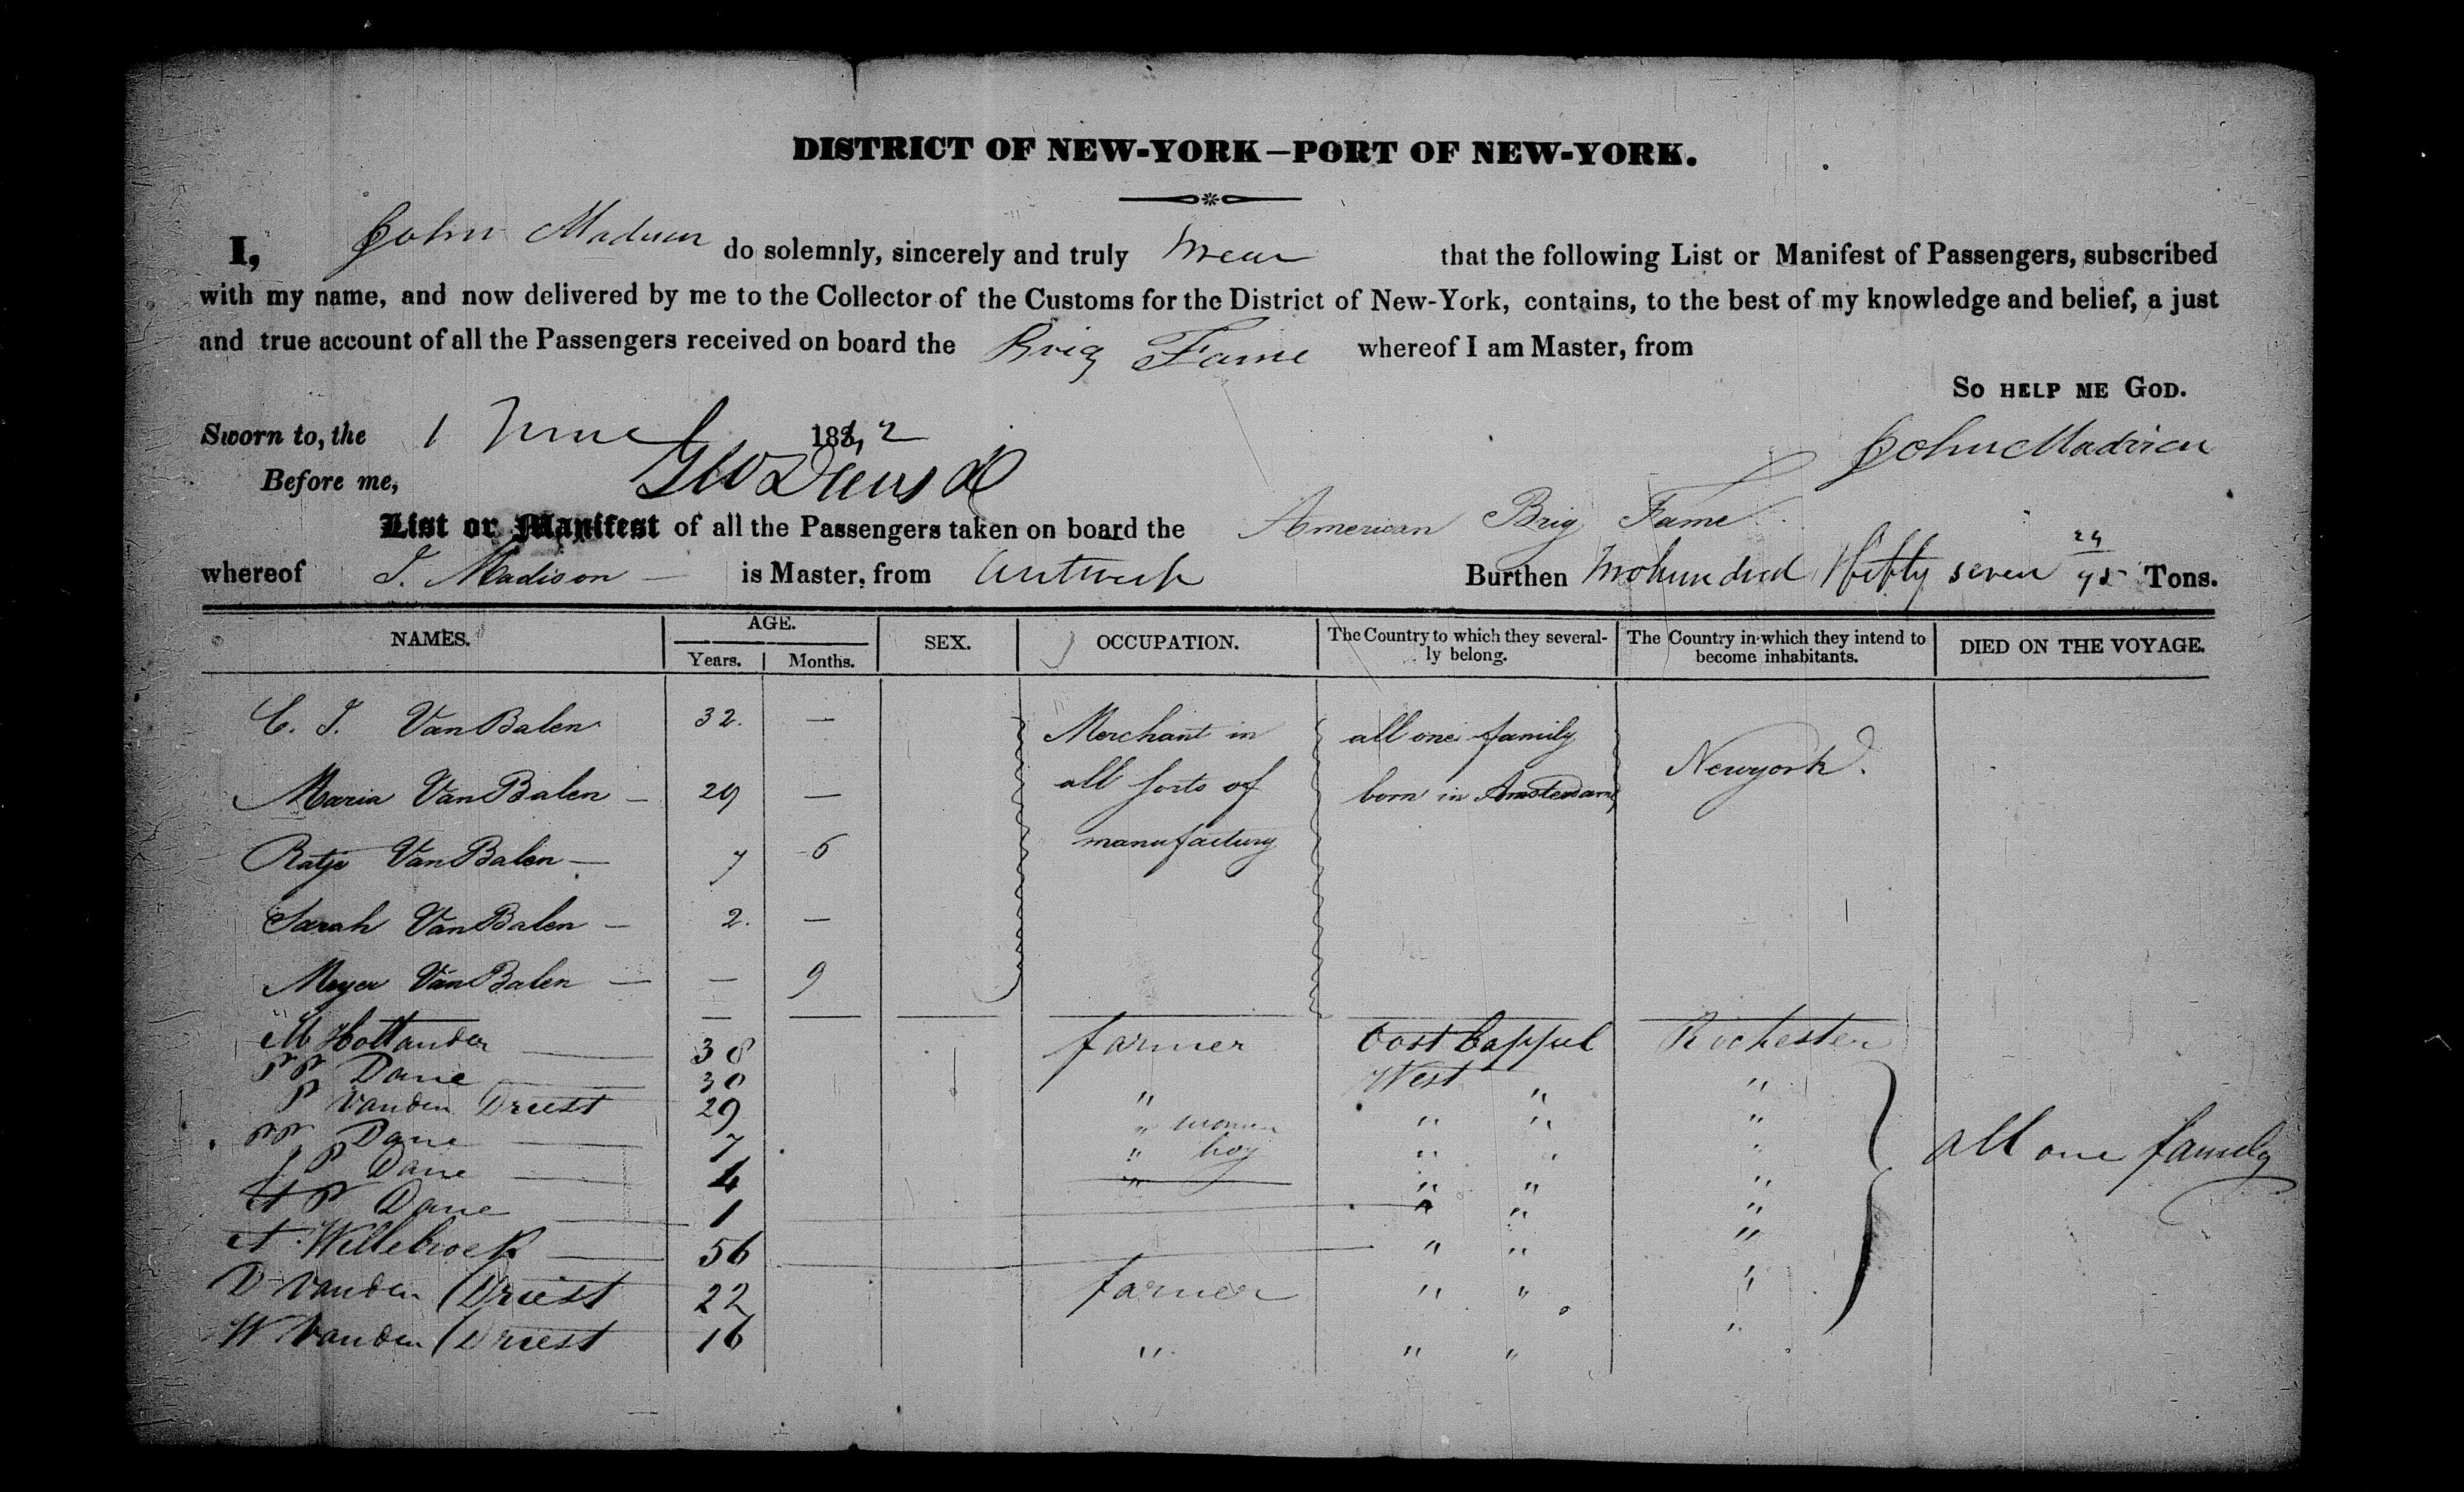 DISTRICT OF NEW-YORK—PORT OF NEW-YORK.
I, John Madison do solemnly, sincerely and truly swear that the following List or Manifest of Passengers, subscribed
with my name, and now delivered by me to the Collector of the Customs for the District of New-York, contains, to the best of my knowledge and belief, a just
and true account of all the Passengers received on board the Brig Fame whereof I am Master, from
SO HELP ME GOD.
Sworn to, the 1 June 1842
John Madison
Before me,
List or Manifest of all the Passengers taken on board the American Brig Fame
whereof J. Madison is Master, from Antwerp Burthen Twohundred fifty seven 29/95 Tons.
NAMES. AGE. Years. Months. SEX. OCCUPATION. The Country to which they severally belong. The Country in which they intend to become inhabitants. DIED ON THE VOYAGE.
C. J. Van Balen 32. — Merchant in all one family Newyork.
Maria Van Balen — 29 — all sorts of born in Amsterdam
Ratje Van Balen — 7 6 manufactury
Sarah Van Balen — 2. —
Meyer Van Balen — — 9
M Hollander 38 farmer Oost Cappel Rochester
P P Dane 38 " West " "
P Vanden Driest 29 " women " " "
P P Dane 7 " boy " " "
J P Dane 4 " " " " all one family
A P Dane 1 " " "
A Willebroek 56 " " "
D Vanden Driest 22 farmer " " "
W Vanden Driest 16 " " " "